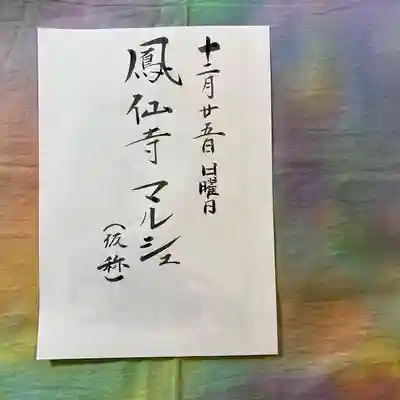 十二月廿五日 日曜日
鳳仙寺マルシェ
(仮称)